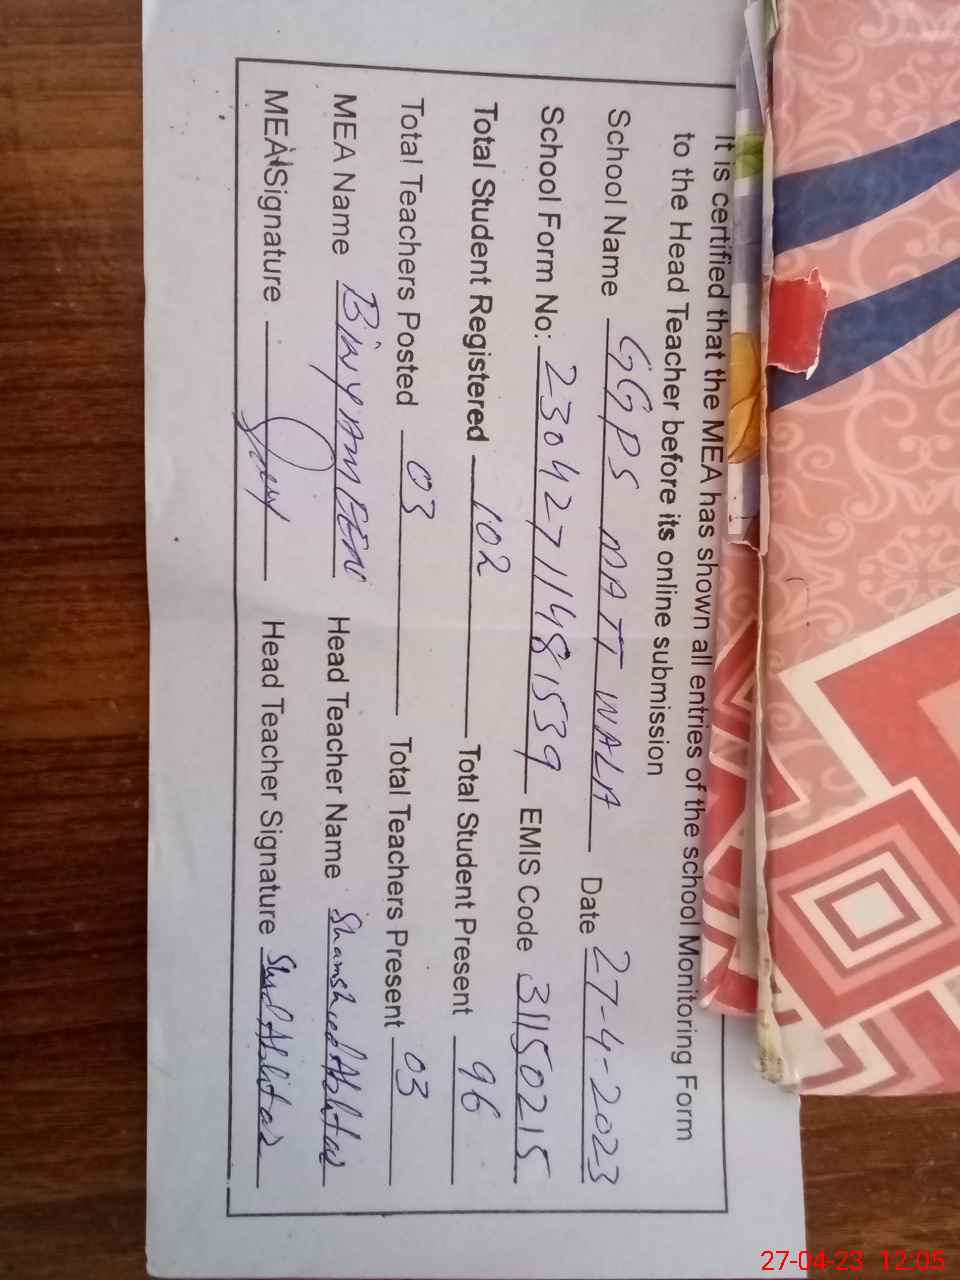 It is certified that the MEA has shown all entries of the school Monitoring Form
to the Head Teacher before its online submission
School Name GGPS MATT WALA Date 27-4-2023
School Form No: 23042711481539 EMIS Code 31150215
Total Student Registered 102 Total Student Present 96
Total Teachers Posted 03 Total Teachers Present 03
MEA Name Binyameen Head Teacher Name Shamshad Akhtar
MEA Signature Head Teacher Signature
27-04-23 12:05